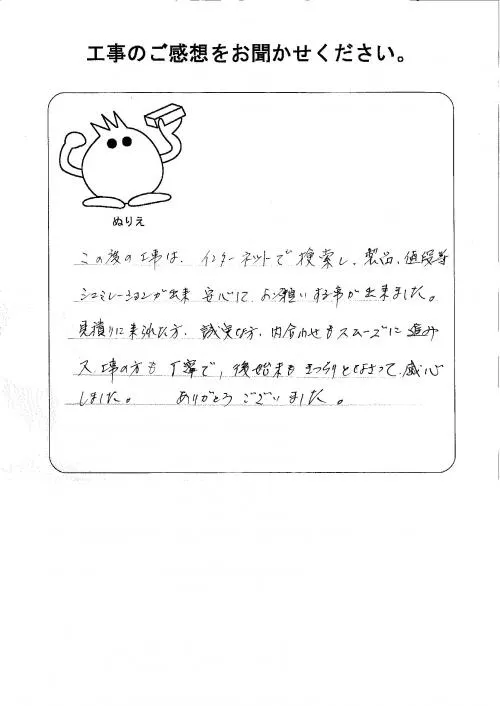 工事のご感想をお聞かせください。
ぬりえ
この度の工事は、インターネットで検索し、製品、値段等
シュミレーションが出来 安心して、お願いする事が出来ました。
見積りに来られた方、誠実な方、内合わせもスムーズに進み
又、工事の方も丁寧で、後始末もきっちりとなさって、感心
しました。 ありがとうございました。